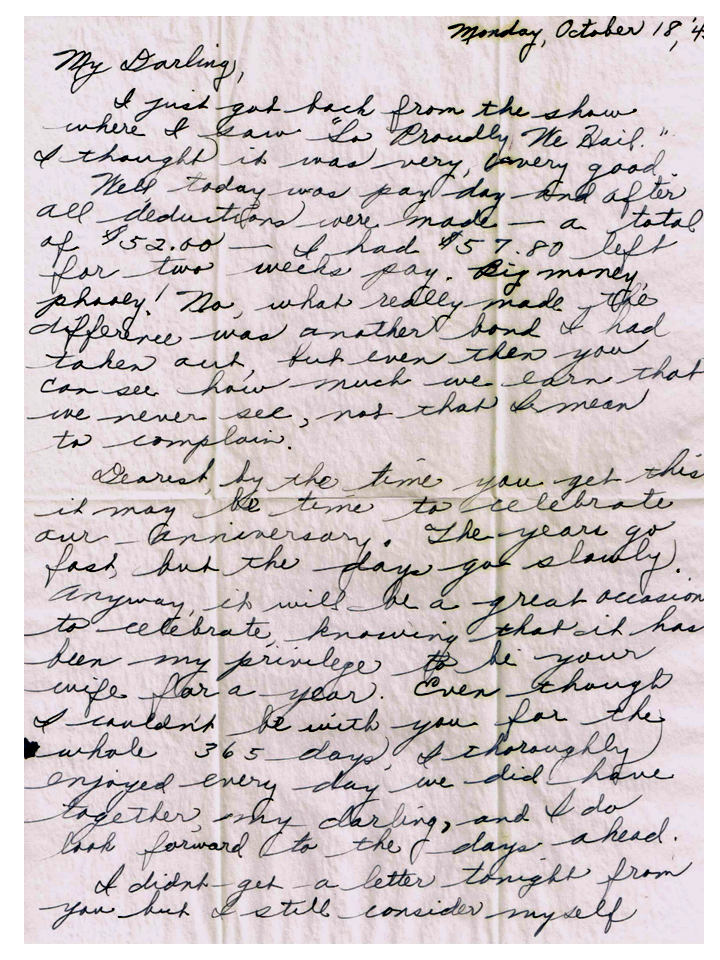 Monday, October 18, '4
My Darling,
I just got back from the show
where I saw "So Proudly We Hail."
I thought it was very, very good.
Well today was pay day and after
all deductions were made — a total
of $52.00 — I had $57.80 left
for two weeks pay. Big money,
phooey! No, what really made the
difference was another bond I had
taken out, but even then you
can see how much we earn that
we never see, not that I mean
to complain.
Dearest, by the time you get this
it may be time to celebrate
our anniversary. The years go
fast, but the days go slowly.
Anyway, it will be a great occasion
to celebrate, knowing that it has
been my privilege to be your
wife for a year. Even though
I couldn't be with you for the
whole 365 days, I thoroughly
enjoyed every day we did have
together, my darling, and I do
look forward to the days ahead.
I didnt get a letter tonight from
you but I still consider myself